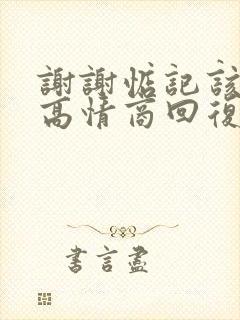 謝謝惦記該
高情商回復
書言盡